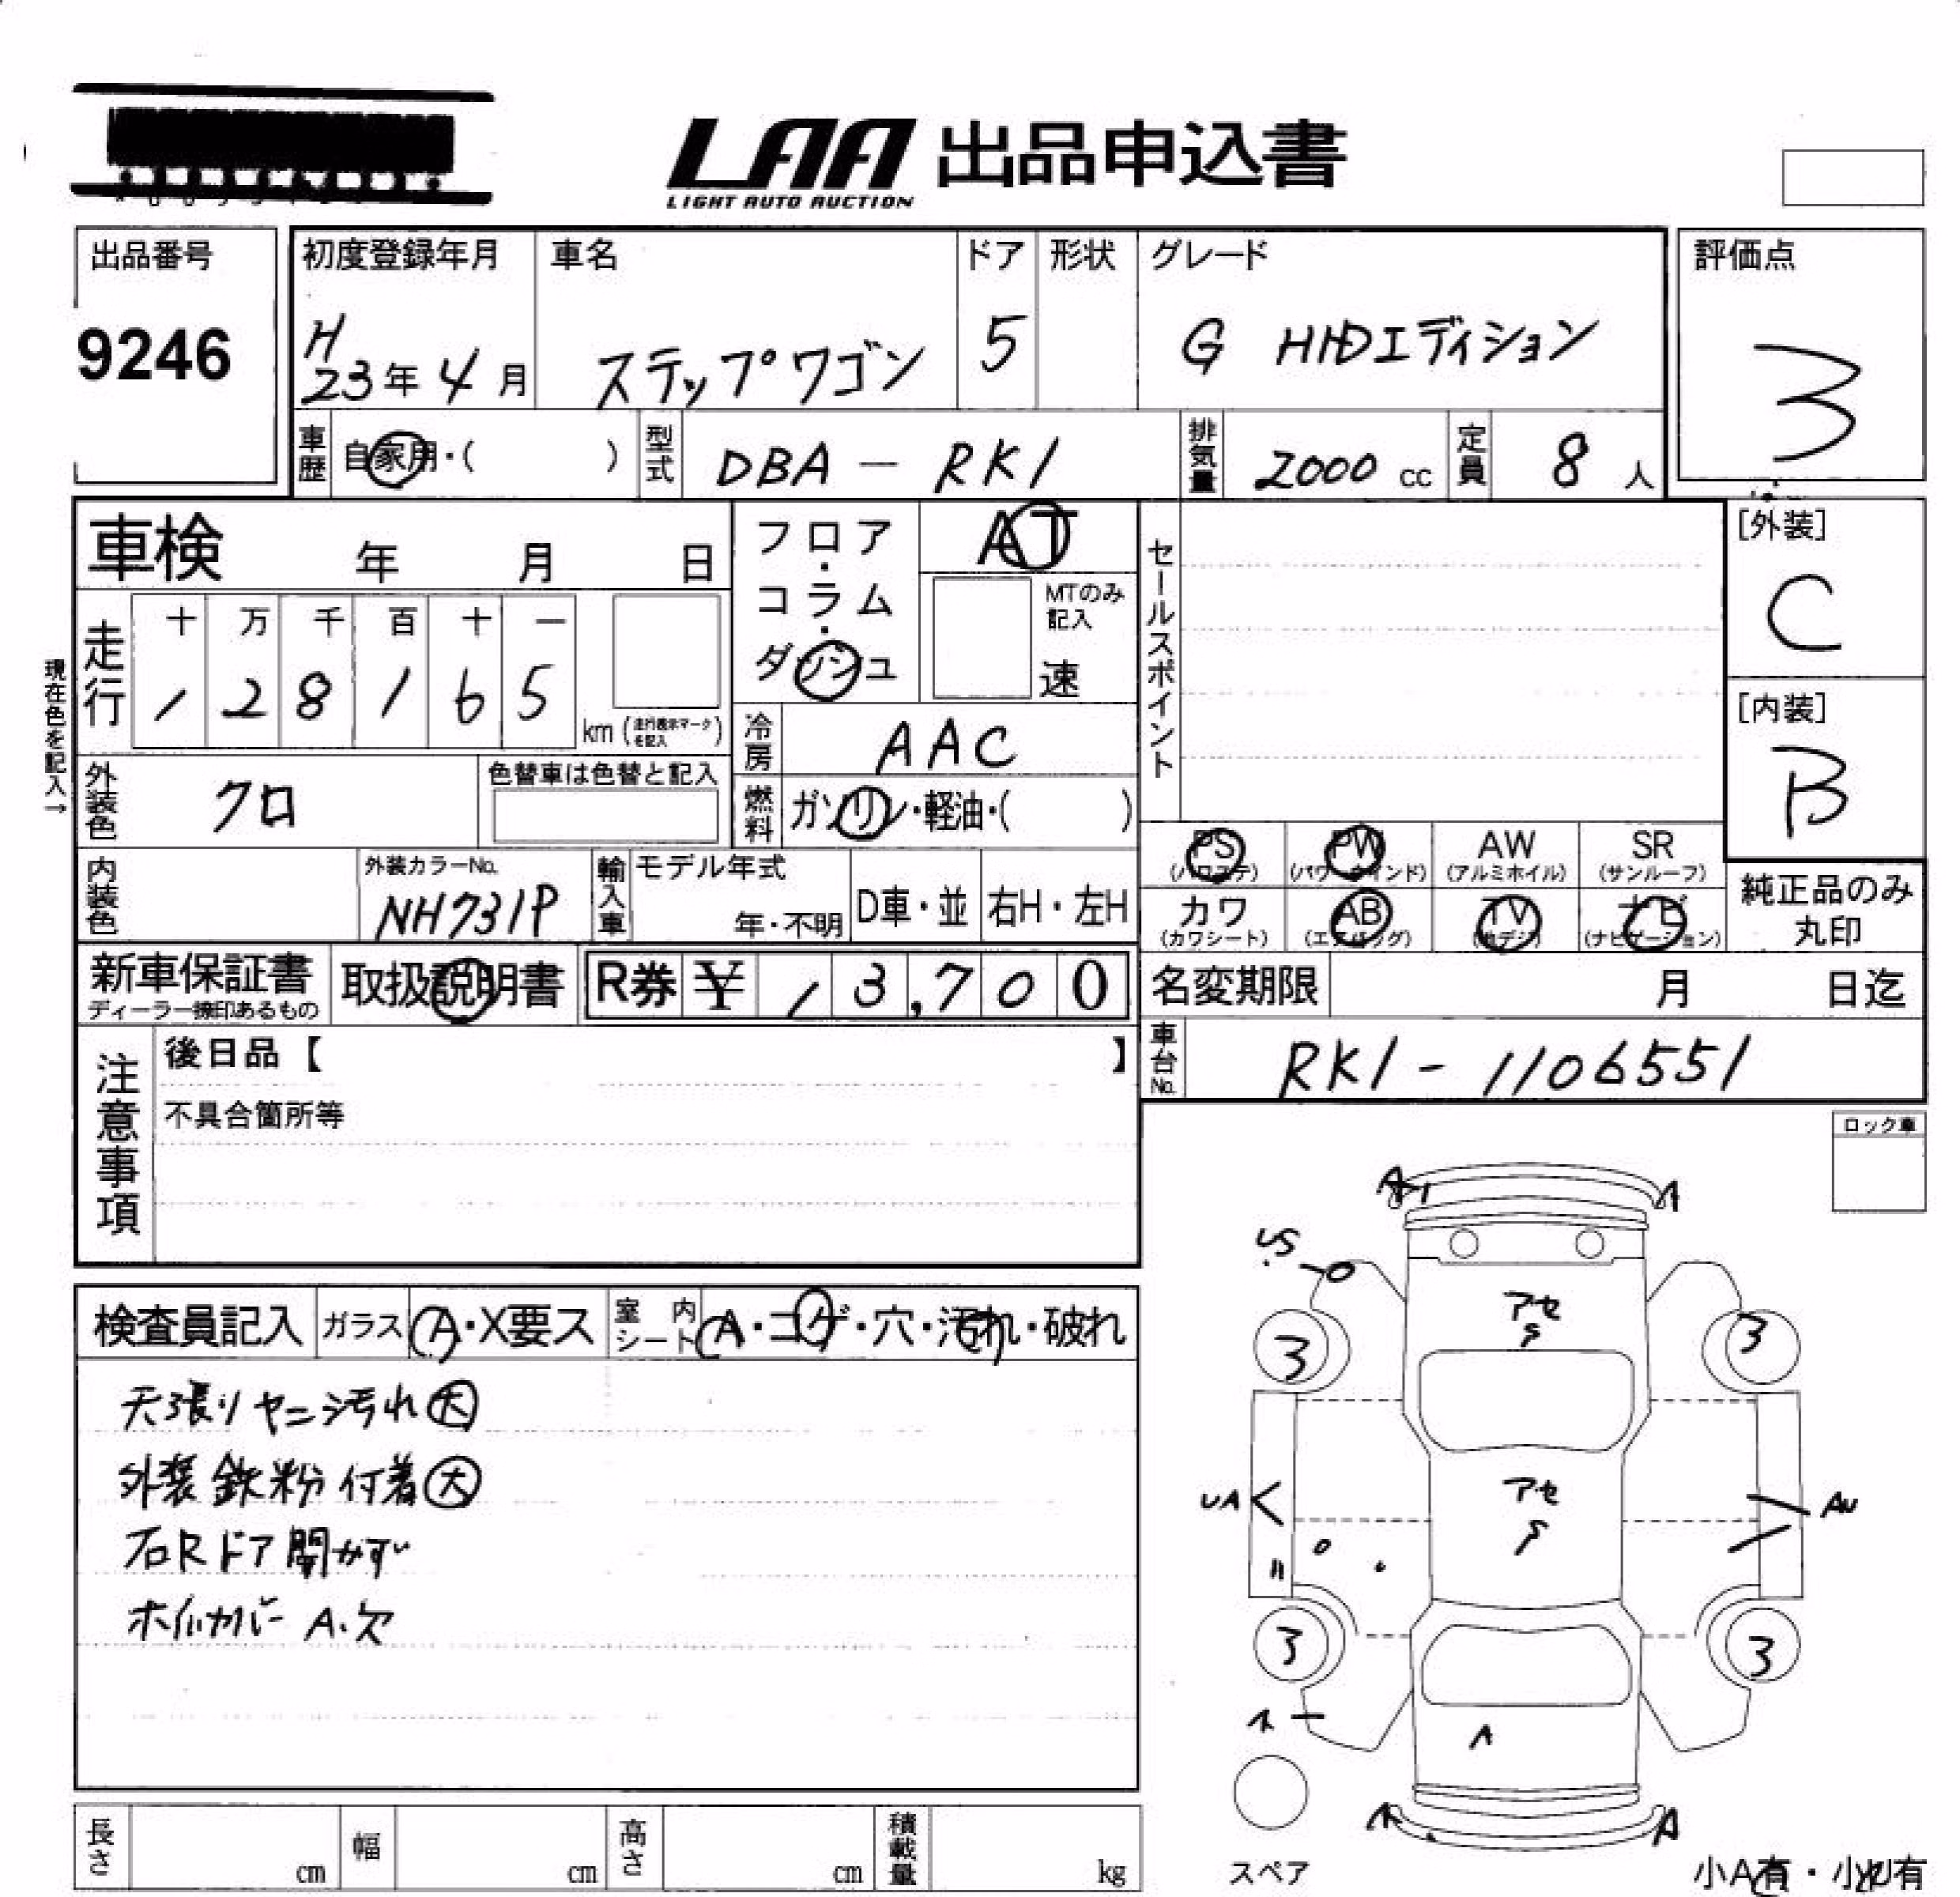 LAA 出品申込書
LIGHT AUTO AUCTION
出品番号
9246
初度登録年月
H
23年 4月
車名
ステップワゴン
ドア
5
形状
グレード
G HIDエディション
評価点
3
車歴
自家用・( )
型式
DBA - RK1
排気量
2000 cc
定員
8 人
車検 年 月 日
フロア・コラム・ダッシュ
AT
MTのみ記入
速
セールスポイント
[外装]
C
[内装]
B
現在色を記入→
走行
十 万 千 百 十 一
1 2 8 1 6 5
km (走行表示マークを記入)
冷房
AAC
燃料
ガソリン・軽油・( )
外装色
クロ
色替車は色替と記入
内装色
外装カラーNo.
NH731P
輸入車
モデル年式
年・不明
D車・並
右H・左H
PS
(パワステ)
PW
(パワーウインド)
AW
(アルミホイル)
SR
(サンルーフ)
カワ
(カワシート)
AB
(エアバッグ)
TV
(地デジ)
ナビ
(ナビゲーション)
純正品のみ
丸印
新車保証書
ディーラー捺印あるもの
取扱説明書
R券 ¥ 13,700
名変期限 月 日迄
車台No.
RK1-1106551
注意事項
後日品【 】
不具合箇所等
ロック車
検査員記入
ガラス
A・X要ス
室内シート
A・コゲ・穴・汚れ・破れ
天張りヤニ汚れ大
外装鉄粉付着大
右Rドア開かず
ホイルカバー A.欠
A
A
US
アセ
S
3
3
UA
アセ
S
AU
3
3
A
A
A
スペア
小A有・小U有
長さ cm
幅 cm
高さ cm
積載量 kg